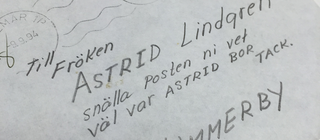 till Fröken
ASTRID Lindgren
snälla Posten ni vet
väl var ASTRID BOR TACK.
MMERBY